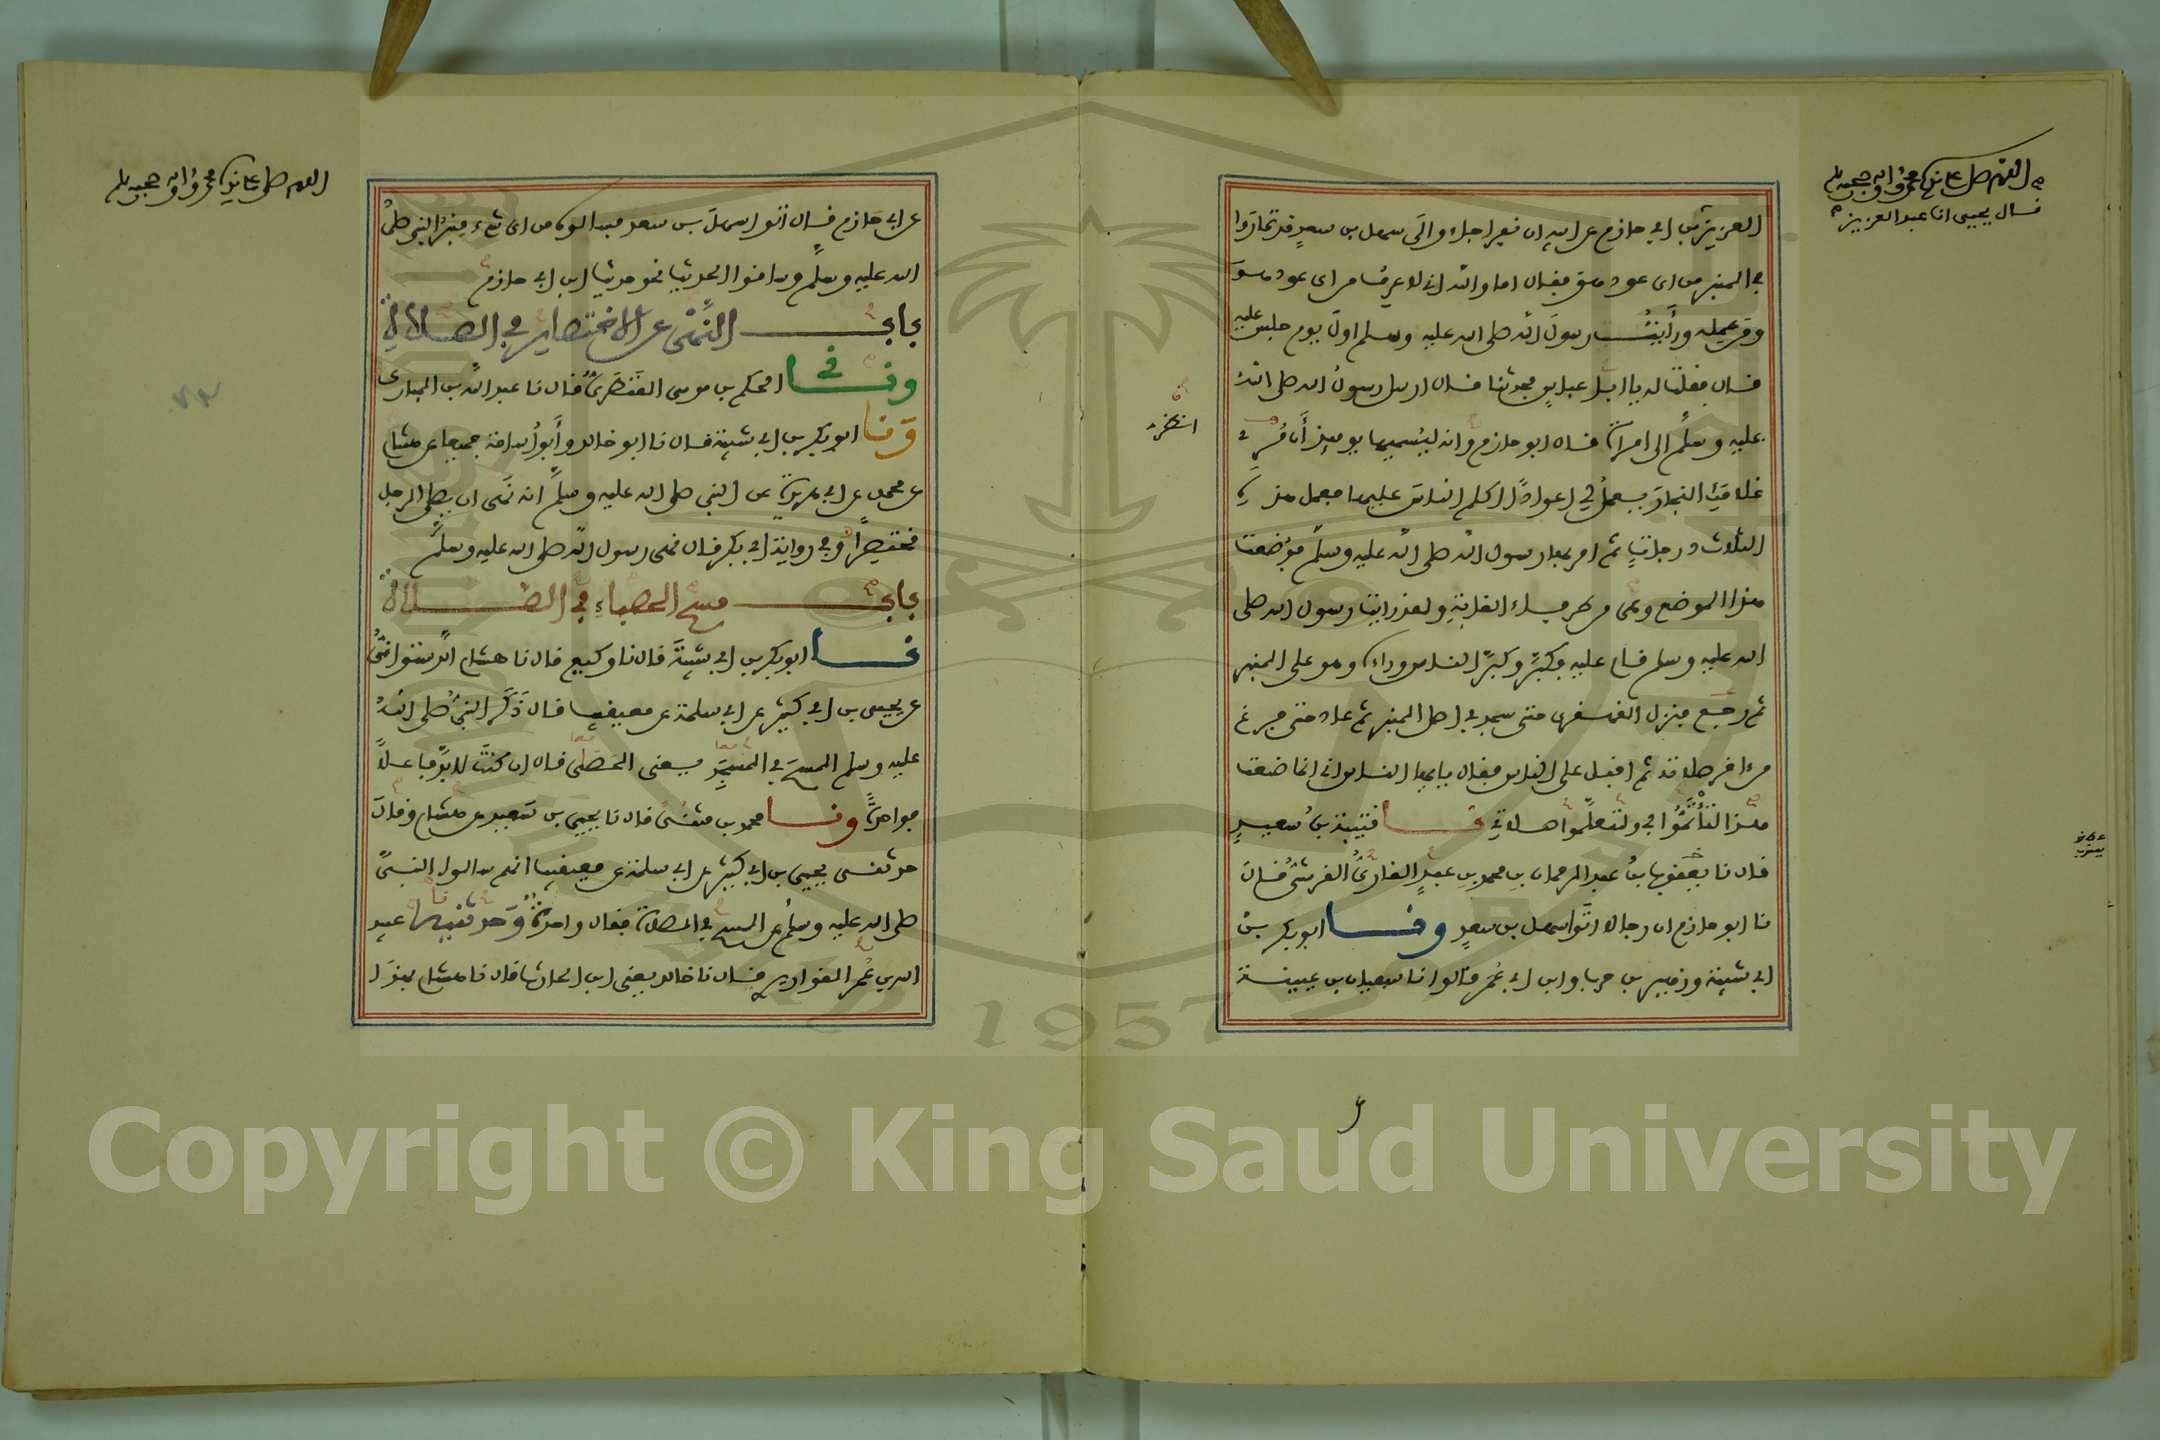 اللهم صل على سيدنا محمد وآله وصحبه وسلم
قال يحيى انا عبد العزيز
العزيز بن ابي حازم عن ابيه ان نفرا جاءوا الى سهل بن سعد قد تماروا
في المنبر من اي عود هو فقال اما والله اني لاعرف من اي عود هو
ومن عمله ورأيت رسول الله صلى الله عليه وسلم اول يوم جلس عليه
قال فقلت له يا ابا عباس فحدثنا قال ارسل رسول الله صلى الله
عليه وسلم الى امرأة قال ابو حازم وانه ليسميها يومئذ
غلامك النجار يعمل لي اعوادا اكلم الناس عليها فعمل هذه
الثلاث درجات ثم امر بها رسول الله صلى الله عليه وسلم فوضعت
هذا الموضع وهي من طرفاء الغابة ولقد رايت رسول الله صلى
الله عليه وسلم قام عليه فكبر وكبر الناس وراءه وهو على المنبر
ثم رجع فنزل القهقرى حتى سجد في اصل المنبر ثم عاد حتى فرغ
من اخر صلاته ثم اقبل على الناس فقال يا ايها الناس اني انما صنعت
هذا لتأتموا بي ولتعلموا صلاتي نا قتيبة بن سعيد
قال نا يعقوب بن عبد الرحمان بن محمد بن عبد القاري القرشي قال
نا ابو حازم ان رجالا اتوا سهل بن سعد ونا ابو بكر بن
ابي شيبة وزهير بن حرب وابن ابي عمر قالوا نا سفيان بن عيينة
اللهم صل على سيدنا محمد وآله وصحبه وسلم
عن ابي حازم قال اتوا سهل بن سعد فسألوه من اي شيء منبر النبي صلى
الله عليه وسلم وساقوا الحديث نحو حديث ابن ابي حازم
باب النهي عن الاختصار في الصلاة
ونا الحكم بن موسى القنطري قال نا عبد الله بن المبارك
ونا ابو بكر بن ابي شيبة قال نا ابو خالد وأبو أسامة جميعا عن هشام
عن محمد عن ابي هريرة عن النبي صلى الله عليه وسلم انه نهى ان يصلي الرجل
مختصرا وفي رواية ابي بكر قال نهى رسول الله صلى الله عليه وسلم
باب مسح الحصباء في الصلاة
نا ابو بكر بن ابي شيبة قال نا وكيع قال نا هشام الدستوائي
عن يحيى بن ابي كثير عن ابي سلمة عن معيقيب قال ذكر النبي صلى الله
عليه وسلم المسح في المسجد يعني الحصى قال ان كنت لا بد فاعلا
فواحدة ونا محمد بن مثنى قال نا يحيى بن سعيد عن هشام قال
حدثني يحيى بن ابي كثير عن ابي سلمة عن معيقيب انهم سالوا النبي
صلى الله عليه وسلم عن المسح في الصلاة فقال واحدة وحدثنيه عبيد
الله بن عمر القواريري قال نا خالد يعني ابن الحارث قال نا هشام بهذا
Copyright © King Saud University
1957